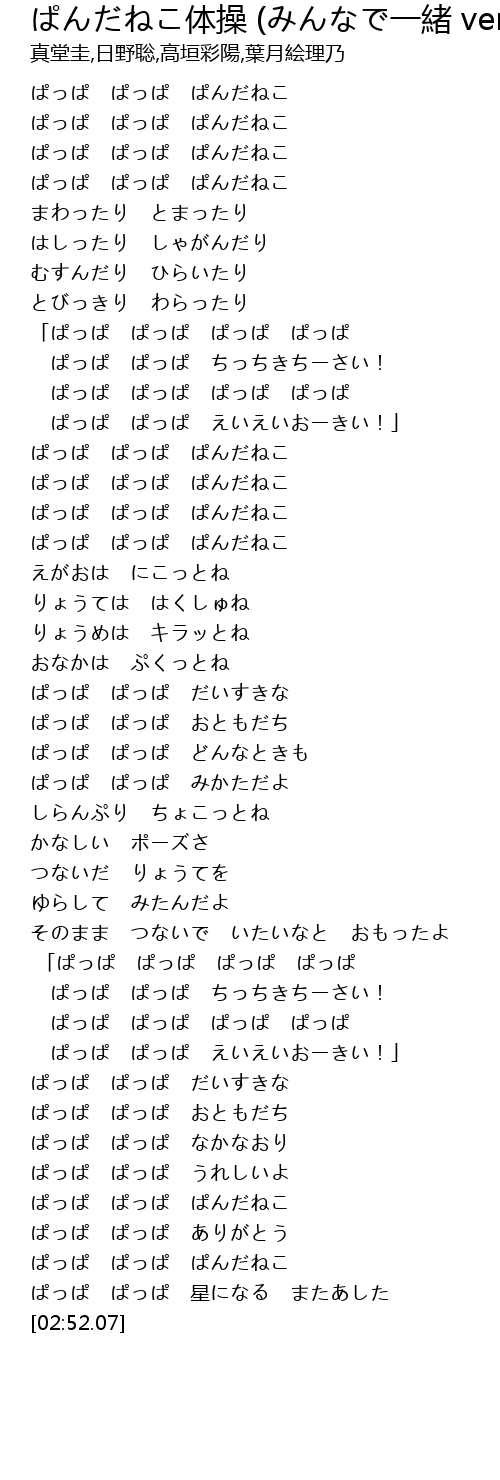 ぱんだねこ体操 (みんなで一緒 ver
真堂圭,日野聡,高垣彩陽,葉月絵理乃
ぱっぱ　ぱっぱ　ぱんだねこ
ぱっぱ　ぱっぱ　ぱんだねこ
ぱっぱ　ぱっぱ　ぱんだねこ
ぱっぱ　ぱっぱ　ぱんだねこ
まわったり　とまったり
はしったり　しゃがんだり
むすんだり　ひらいたり
とびっきり　わらったり
「ぱっぱ　ぱっぱ　ぱっぱ　ぱっぱ
　ぱっぱ　ぱっぱ　ちっちきちーさい！
　ぱっぱ　ぱっぱ　ぱっぱ　ぱっぱ
　ぱっぱ　ぱっぱ　えいえいおーきい！」
ぱっぱ　ぱっぱ　ぱんだねこ
ぱっぱ　ぱっぱ　ぱんだねこ
ぱっぱ　ぱっぱ　ぱんだねこ
ぱっぱ　ぱっぱ　ぱんだねこ
えがおは　にこっとね
りょうては　はくしゅね
りょうめは　キラッとね
おなかは　ぷくっとね
ぱっぱ　ぱっぱ　だいすきな
ぱっぱ　ぱっぱ　おともだち
ぱっぱ　ぱっぱ　どんなときも
ぱっぱ　ぱっぱ　みかただよ
しらんぷり　ちょこっとね
かなしい　ポーズさ
つないだ　りょうてを
ゆらして　みたんだよ
そのまま　つないで　いたいなと　おもったよ
「ぱっぱ　ぱっぱ　ぱっぱ　ぱっぱ
　ぱっぱ　ぱっぱ　ちっちきちーさい！
　ぱっぱ　ぱっぱ　ぱっぱ　ぱっぱ
　ぱっぱ　ぱっぱ　えいえいおーきい！」
ぱっぱ　ぱっぱ　だいすきな
ぱっぱ　ぱっぱ　おともだち
ぱっぱ　ぱっぱ　なかなおり
ぱっぱ　ぱっぱ　うれしいよ
ぱっぱ　ぱっぱ　ぱんだねこ
ぱっぱ　ぱっぱ　ありがとう
ぱっぱ　ぱっぱ　ぱんだねこ
ぱっぱ　ぱっぱ　星になる　またあした
[02:52.07]